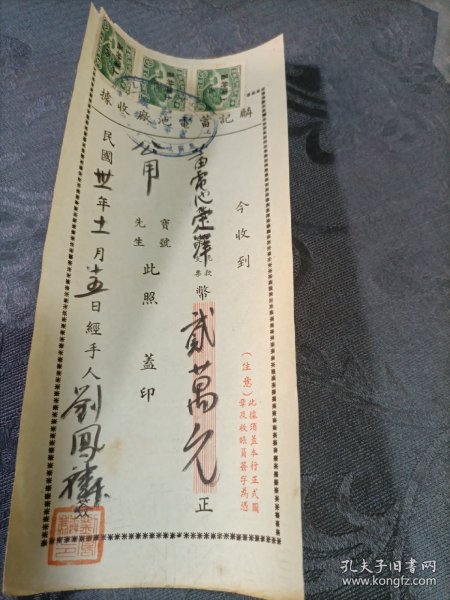 麟記蓄電池廠收據
今收到
蓄電池定洋
票款
幣貳萬元正
公用
寶號
先生
此照 蓋印
民國卅年十一月十五日經手人劉鳳
(注意)此據須蓋本行正式圖
章及收賬員簽字為憑
孔夫子旧书网
www.kongfz.com